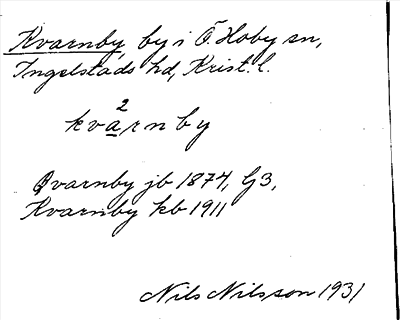 Kvarnby, by i Ö. Hoby sn,
Ingelstads hd, Krist. l.
2
kvarnby
Qvarnby jb 1874, G3,
Kvarnby kb 1911
Nils Nilsson 1931